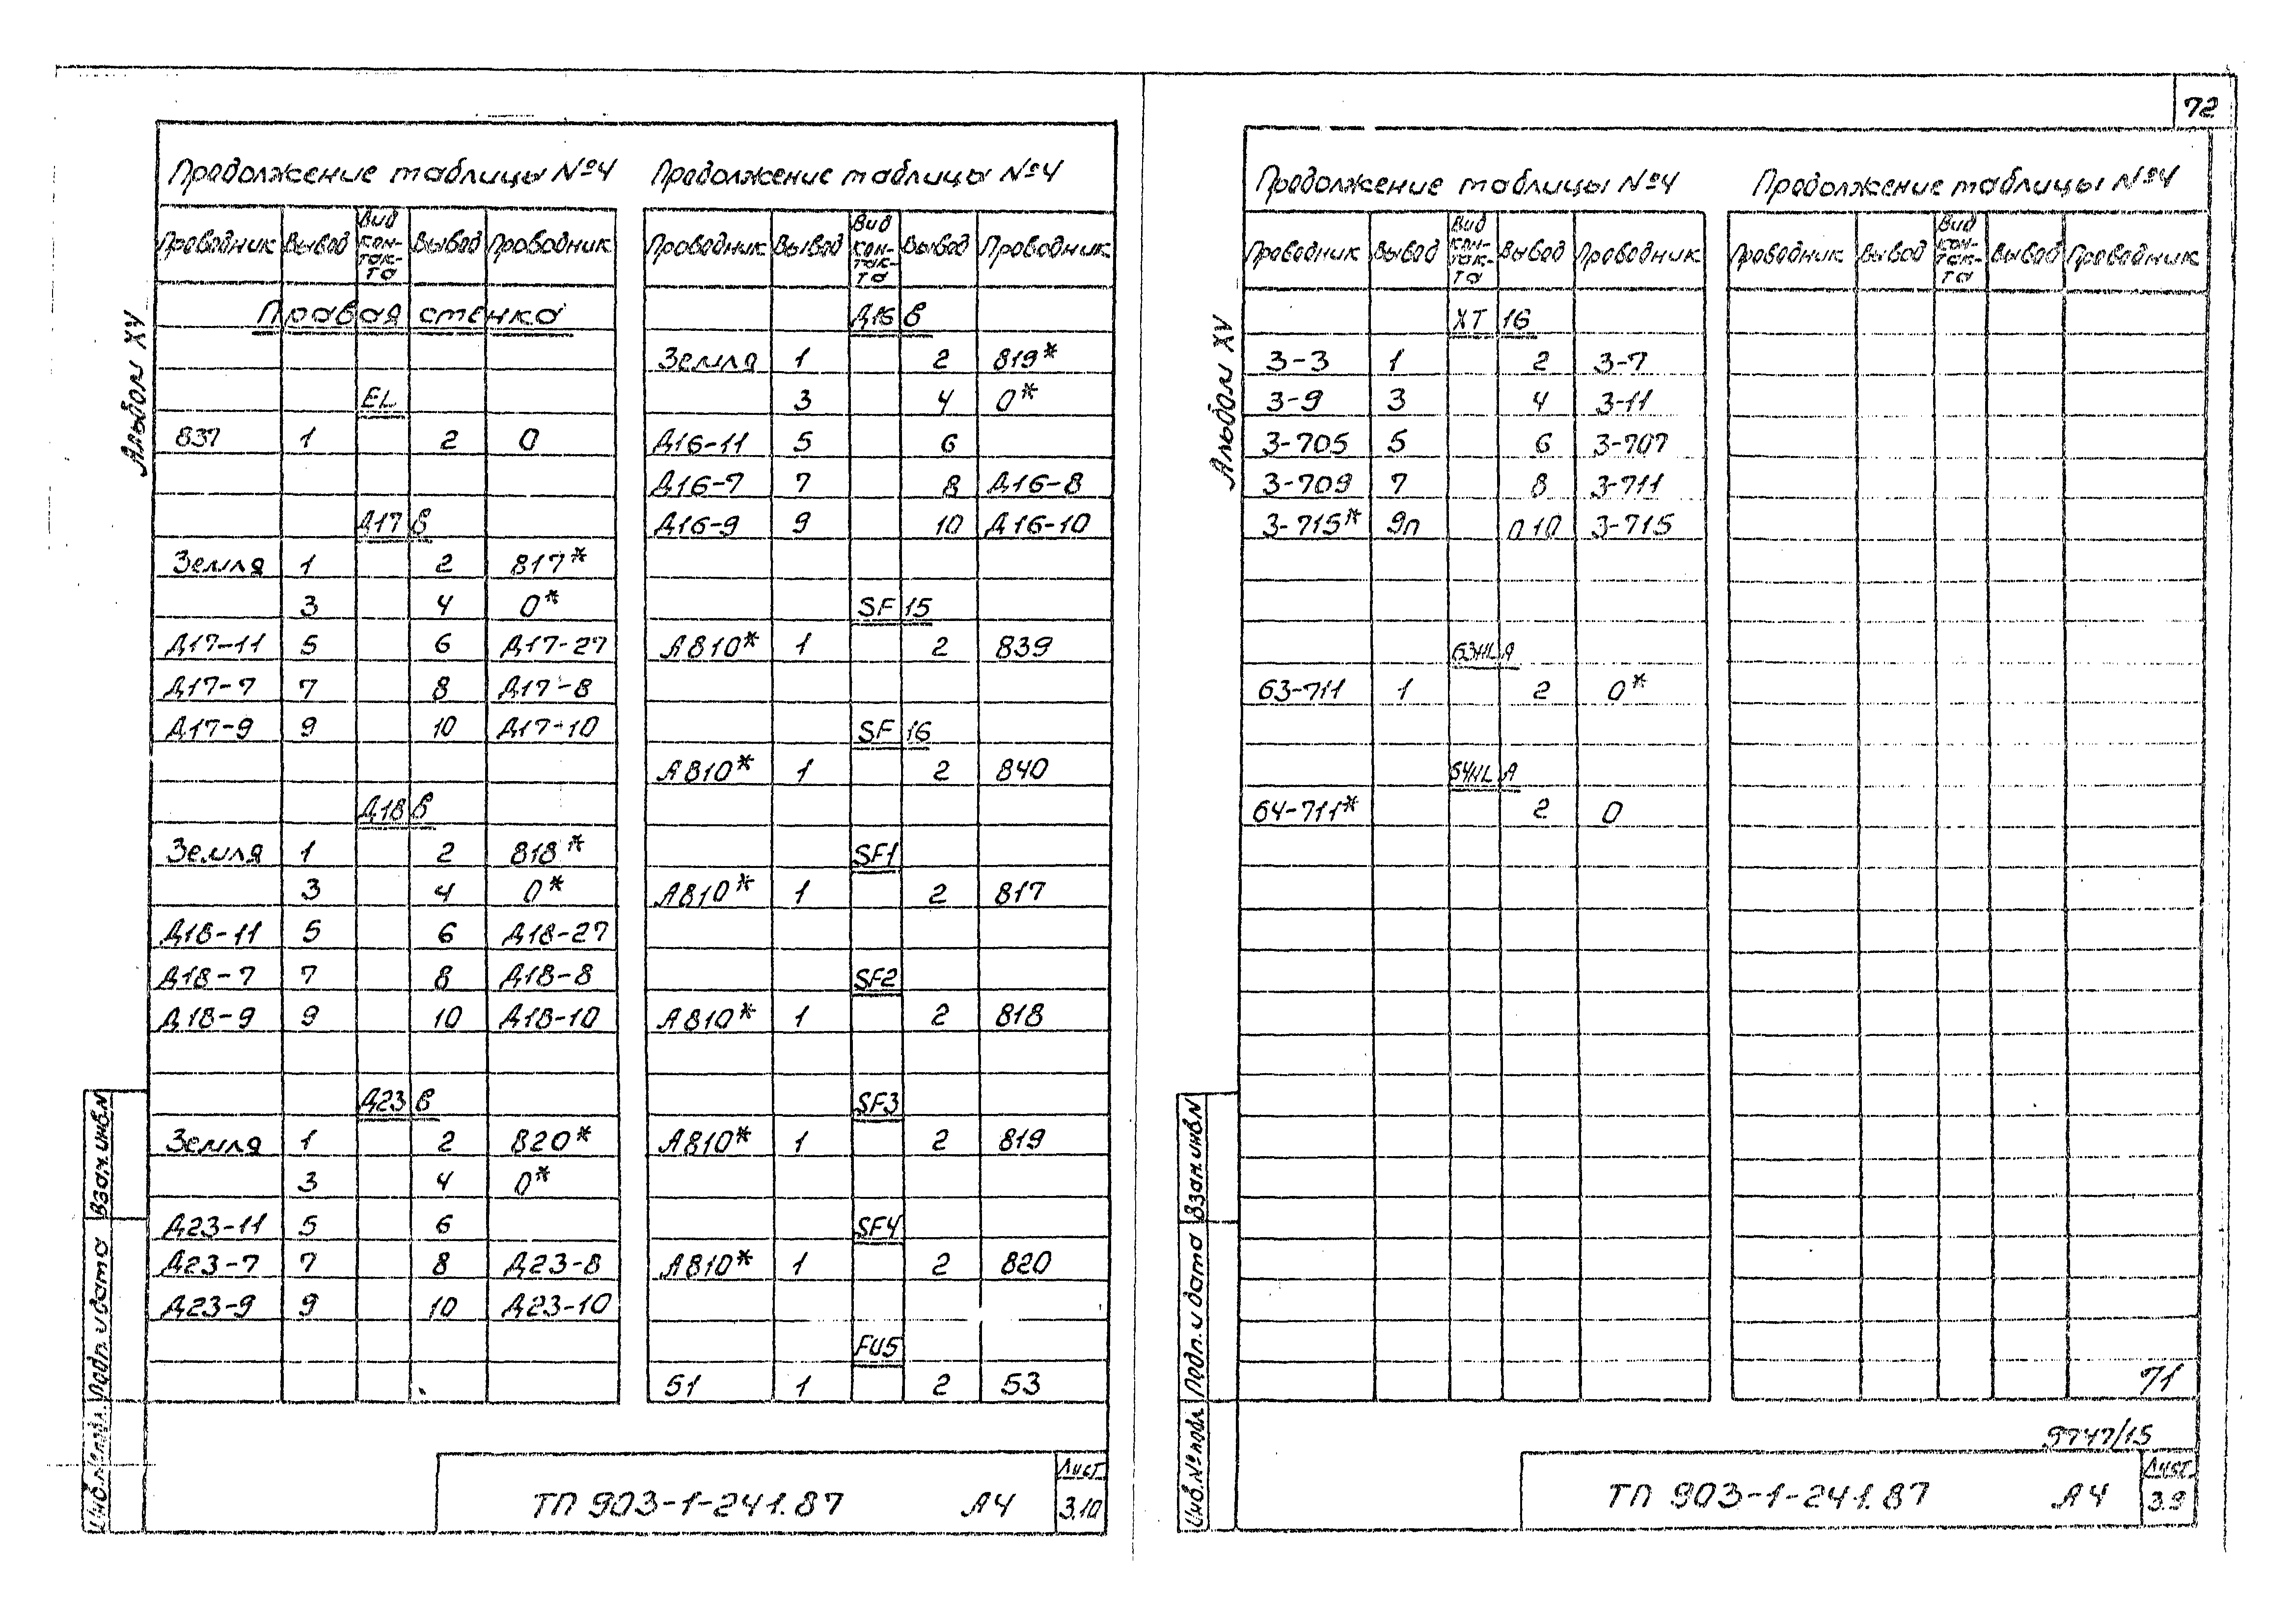 72
Альбом XV
Продолжение таблицы №4
Проводник Вывод Вид кон-так-та Вывод Проводник
Правая стенка
EL
837 1 2 0
Д17 В
Земля 1 2 817*
3 4 0*
Д17-11 5 6 Д17-27
Д17-7 7 8 Д17-8
Д17-9 9 10 Д17-10
Д18 В
Земля 1 2 818*
3 4 0*
Д18-11 5 6 Д18-27
Д18-7 7 8 Д18-8
Д18-9 9 10 Д18-10
Д23 В
Земля 1 2 820*
3 4 0*
Д23-11 5 6
Д23-7 7 8 Д23-8
Д23-9 9 10 Д23-10
Продолжение таблицы №4
Проводник Вывод Вид кон-так-та Вывод Проводник
Д16 В
Земля 1 2 819*
3 4 0*
Д16-11 5 6
Д16-7 7 8 Д16-8
Д16-9 9 10 Д16-10
SF 15
А810* 1 2 839
SF 16
А810* 1 2 840
SF1
А810* 1 2 817
SF2
А810* 1 2 818
SF3
А810* 1 2 819
SF4
А810* 1 2 820
FU5
51 1 2 53
Инв.№ подл. Подп. и дата Взам.инв.N
ТП 903-1-241.87 А4
Лист
3.10
Альбом XV
Продолжение таблицы №4
Проводник Вывод Вид кон-так-та Вывод Проводник
XT 16
3-3 1 2 3-7
3-9 3 4 3-11
3-705 5 6 3-707
3-709 7 8 3-711
3-715* 9п п10 3-715
63HL А
63-711 1 2 0*
64HL А
64-711* 2 0
Продолжение таблицы №4
Проводник Вывод Вид кон-так-та Вывод Проводник
71
Инв.№ подл. Подп. и дата Взам.инв.N
9747/15
ТП 903-1-241.87 А4
Лист
3.9